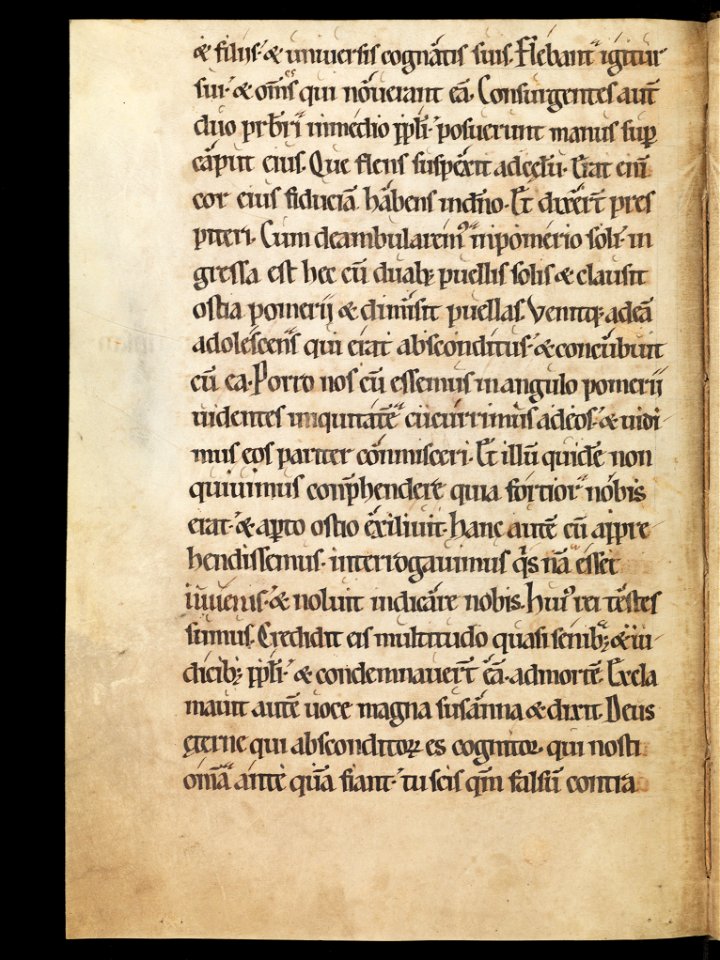 & filiis· & uniuersis cognatis suis. Flebant igitur
sui· & om̄s qui nouerant eā. Consurgentes aut̄
duo prb̄ri in medio ppl̄i· posuerunt manus sup̱
caput eius. Que flens suspexit ad cęlū. Erat eni̅
cor eius fiduciā habens in dn̄o. Et dixer̄t pres
biteri. Cum deambularem᷒ in pomerio soli· in
gressa est hec cū duabꝫ puellis solis & clausit
ostia pomerij & dimisit puellas. Venitqꝫ ad eā
adolescens qui erat absconditus· & concubuit
cū ea. Porro nos cū essemus in angulo pomerij
uidentes iniquitatē cucurrimus ad eos· & uidi
mus eos pariter conmisceri. Et illū quidē non
quiuimus conp̄hendere quia fortior nobis
erat· & ap̱to ostio exiliuit. Hanc autē cū appre
hendissemus· interrogauimus q̇s nā esset
iuuenis· & noluit indicare nobis. Hui᷒ rei testes
sumus. Credidit eis multitudo quasi senibꝫ & iu
dicibꝫ ppl̄i· & condemnauer̄t eā· ad mortē. Excla
mauit autē uoce magna susanna & dixit. Deus
ęterne qui absconditoꝝ es cognitor· qui nosti
om̄ia ante quā fiant· tu scis qm̄ falsū contra